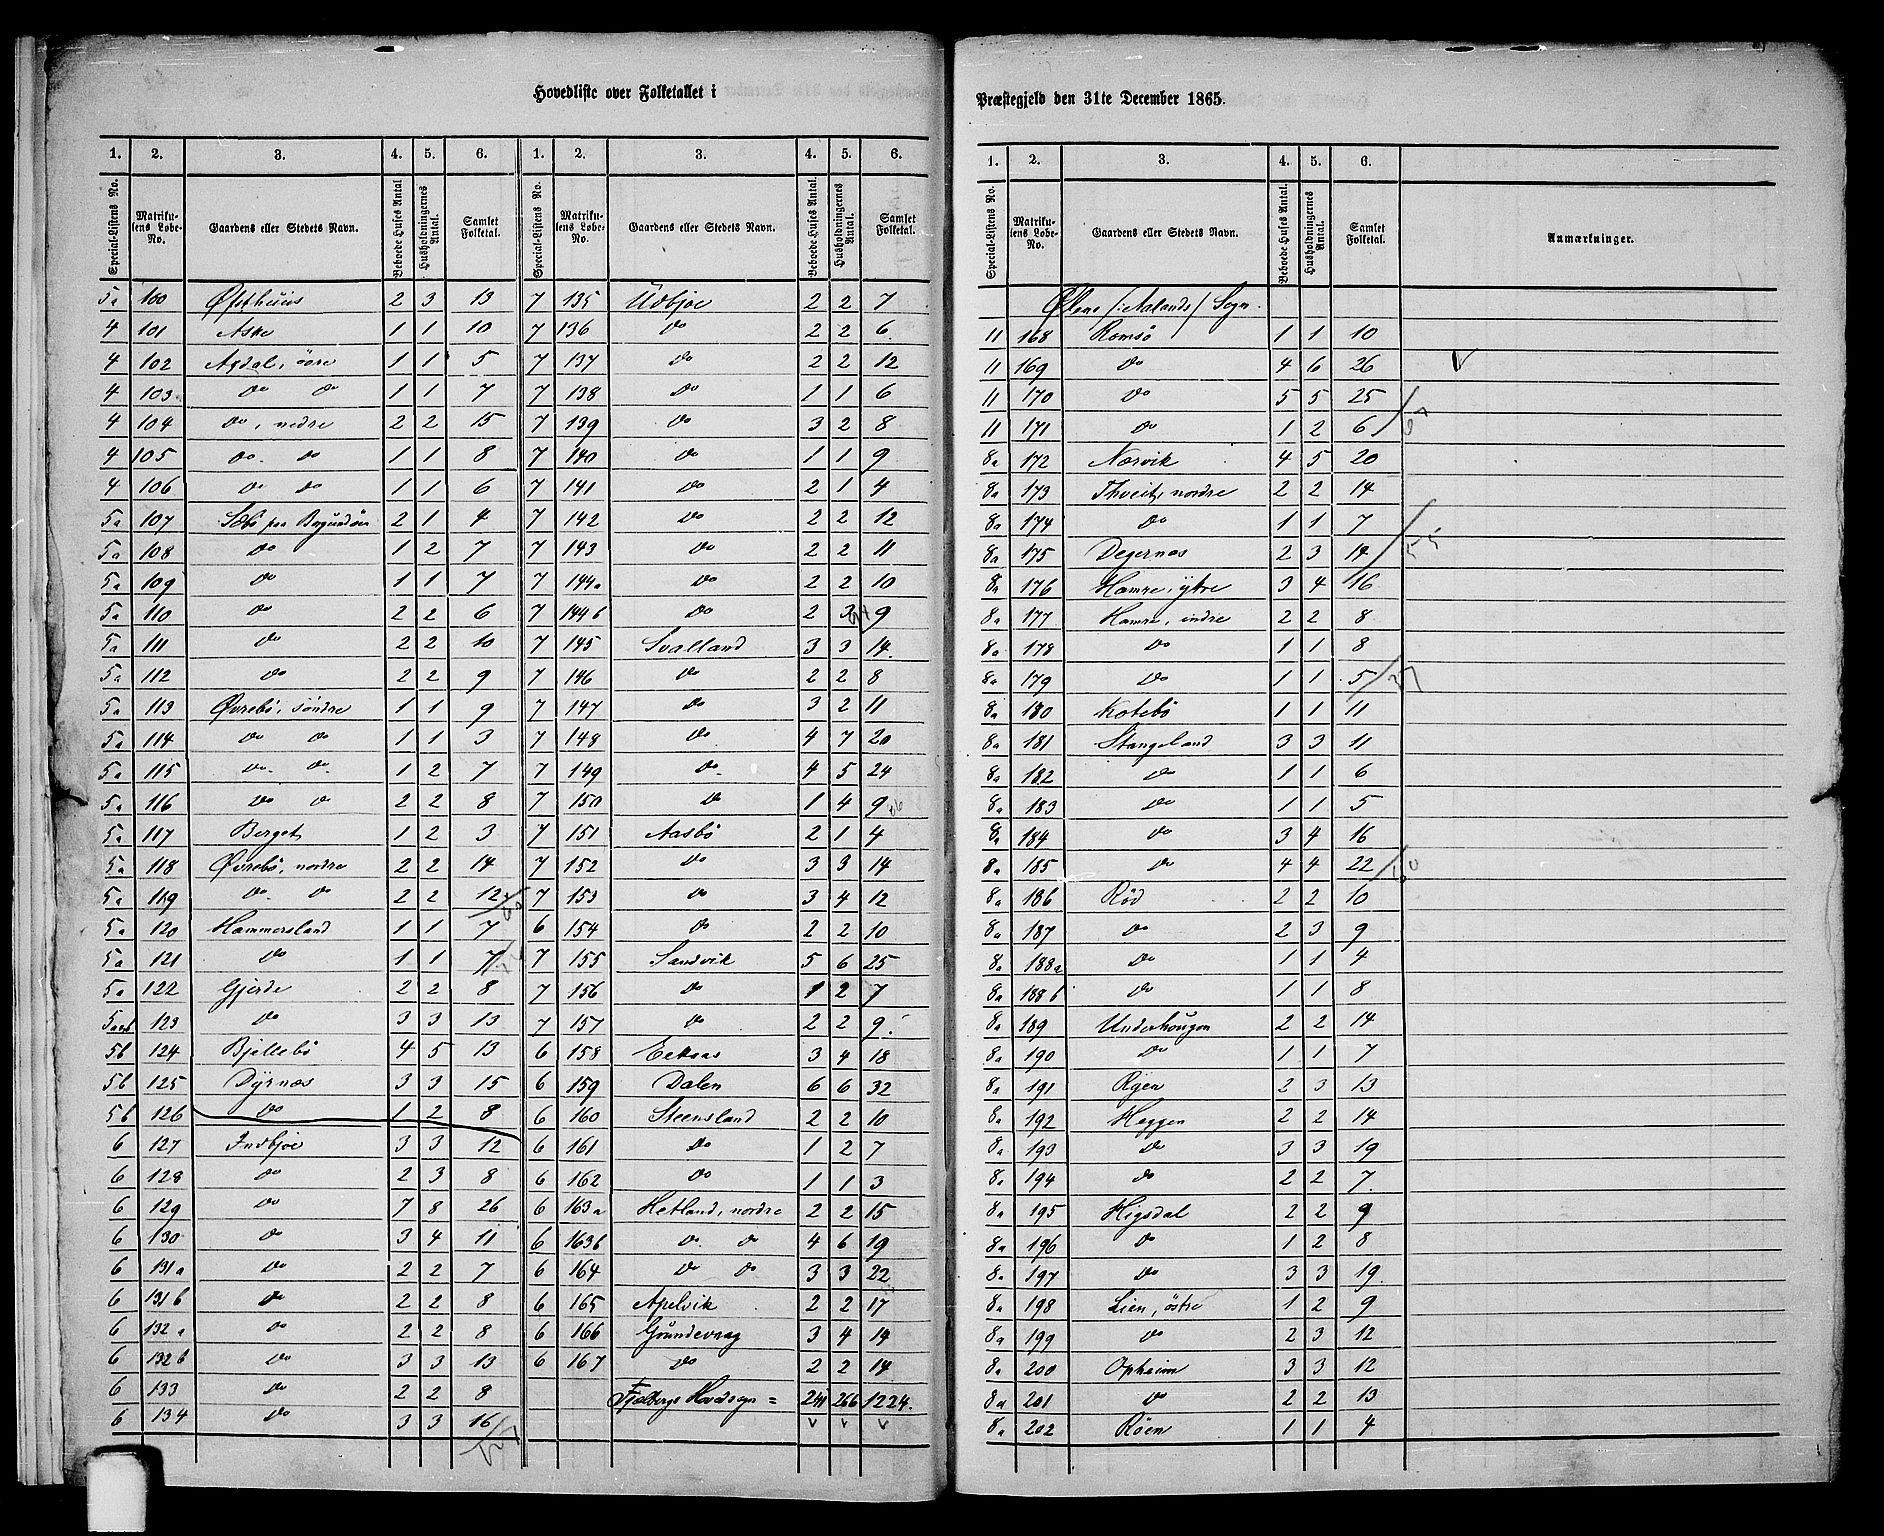 Hovedliste over Folketallet i
Præstegjeld den 31te December 1865.
1. 2. 3. 4. 5. 6. 1. 2. 3. 4. 5. 6.
Special-Listens No. Matrikulens Løbe-No. Gaardens eller Stedets Navn. Beboede Huses Antal Husholdningernes Antal. Samlet Folketal. Special-Listens No. Matrikulens Løbe-No. Gaardens eller Stedets Navn. Beboede Huses Antal. Husholdningernes Antal. Samlet Folketal.
5a 100 Østhuus 2 3 13 7 135 Udbjoe 2 2 7
4 101 Aske 1 1 10 7 136 Do 2 2 6
4 102 Agdal, övre 1 1 5 7 137 Do 2 2 12
4 103 Do Do 1 1 7 7 138 Do 1 1 6
4 104 Do, nedre 2 2 15 7 139 Do 3 2 8
4 105 Do. Do 1 1 8 7 140 Do 1 1 9
4 106 Do Do 1 1 6 7 141 Do 2 1 4
5a 107 Sæbö paa Borgundöen 2 1 4 7 142 Do 2 2 12
5a 108 Do 1 2 7 7 143 Do 2 2 11
5a 109 Do 1 1 7 7 144a Do 2 2 10
5a 110 Do 2 2 6 7 144b Do 2 3 9
5a 111 Do 2 2 10 7 145 Svalland 3 3 14.
5a 112 Do 2 2 9 7 146 Do 2 2 8
5a 113 Øvrebö, söndre 1 1 9 7 147 Do 3 2 11
5a 114 Do Do 1 1 3 7 148 Do 4 7 20
5a 115 Do. Do. 1 2 7 7 149 Do. 4 5 24
5a 116 Do Do 2 2 8 7 150 Do 1 4 9
5a 117 Berget 1 2 3 7 151 Aasbö 2 1 4
5a 118 Øvrebö, nordre 2 2 14 7 152 Do 3 3 14
5a 119 Do. Do 2 2 12 7 153 Do 3 4 12
5a 120 Hammersland 1 1 7 6 154 Do 2 2 10
5a 121 Do 1 1 7 7 155 Sandvik 5 6 25
5a 122 Gjerde 2 2 8 7 156 Do 1 2 7
5a&b 123 Do 3 3 13 7 157 Do 2 2 9.
5b 124 Bjellebö 4 5 13 6 158 Eekaas 3 4 18
5b 125 Dyrnæs 3 3 15 6 159 Dalen 6 6 32
5b 126 Do 1 2 8 6 160 Steensland 2 2 10
6 127 Indbjoe 3 3 12 6 161 Do 1 2 7
6 128 Do 2 3 8 6 162 Do 1 1 3
6 129 Do 7 8 26 6 163a Hetland, nordre 2 2 15
6 130 Do 3 4 11 6 163b Do. Do 4 6 19
6 131a Do 2 2 7 6 164 Do Do 3 3 22
6 131b Do 2 2 8 6 165 Apelvik 2 2 17
6 132a Do 2 2 8 6 166 Grundevaag 3 4 14
6 132b Do 3 3 13 6 167 Do 2 2 14
6 133 Do 2 2 8 Fjælbergs Hovedsogn = 241 266 1224.
6 134 Do 3 3 16
1. 2. 3. 4. 5. 6.
Special-Listens No. Matrikulens Løbe-No. Gaardens eller Stedets Navn. Beboede Huses Antal. Husholdningernes Antal. Samlet Folketal. Anmærkninger.
Ølens /: Aalands / Sogn.
11 168 Romsö 1 1 10
11 169 Do 4 6 26
11 170 Do 5 5 25
11 171 Do 1 2 6 67
8a 172 Nærvik 4 5 20
8a 173 Thveit, nordre 2 2 14
8a 174 Do 1 1 7
8a 175 Degernæs 2 3 14 55
8a 176 Hamre, ytre 3 4 16
8a 177 Hamre, indre 2 2 8
8a 178 Do 1 1 8
8a 179 Do 1 1 5 37
8a 180 Kotebö 1 1 11
8a 181 Stangeland 3 3 11
8a 182 Do 1 1 6
8a 183 Do 1 1 5
8a 184 Do 3 4 16
8a 185 Do 4 4 22 60
8a 186 Röd 2 2 10
8a 187 Do 2 3 9
8a 188a Do 1 1 4
8a 188b Do 1 1 8
8a 189 Underhougen 2 2 14
8a 190 Do 1 1 7
8a 191 Ryen 2 3 13
8a 192 Heggen 2 2 14
8a 193 Do 3 3 19
8a 194 Do 2 2 7.
8a 195 Higsdal 2 2 9
8a 196 Do 1 2 8
8a 197 Do 3 3 19
8a 198 Lien, östre 1 2 9
8a 199 Do 2 3 12
8a 200 Opheim 3 3 12
8a 201 Do 2 2 13
8a 202 Röen 1 1 4